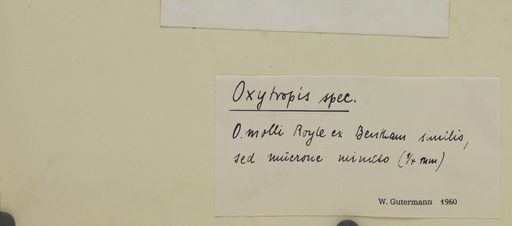 Oxytropis spec.
O. molli Royle ex Bentham similis,
sed mucrone minuto (¼ mm)
W. Gutermann 1960